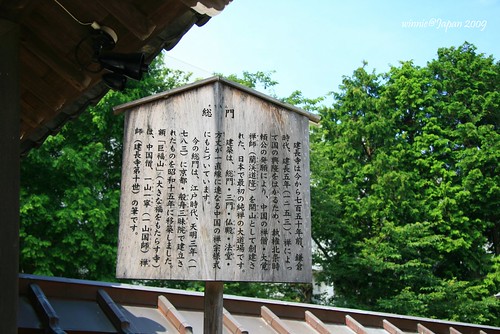 winnie@Japan 2009
総門
建長寺は今から七百五十年前、鎌倉
時代、建長五年(一二五三)、禅によっ
て国の興隆をはかるため、執権北条時
頼公の発願により、中国の禅僧・大覚
禅師(蘭渓道隆)を開山として創建さ
れた、日本で最初の純禅の大道場です。
建築は、総門・三門・仏殿・法堂・
方丈が一直線に連なる中国の禅宗様式
にもとづいています。
今の総門は、江戸時代、天明三年(一
七八三)に京都・般舟三昧院で建立さ
れたものを昭和十五年に移築しました。
額「巨福山」(大きな福をもたらす寺)
は、中国僧、一山一寧(一山国師)禅
師(建長寺第十世)の筆です。